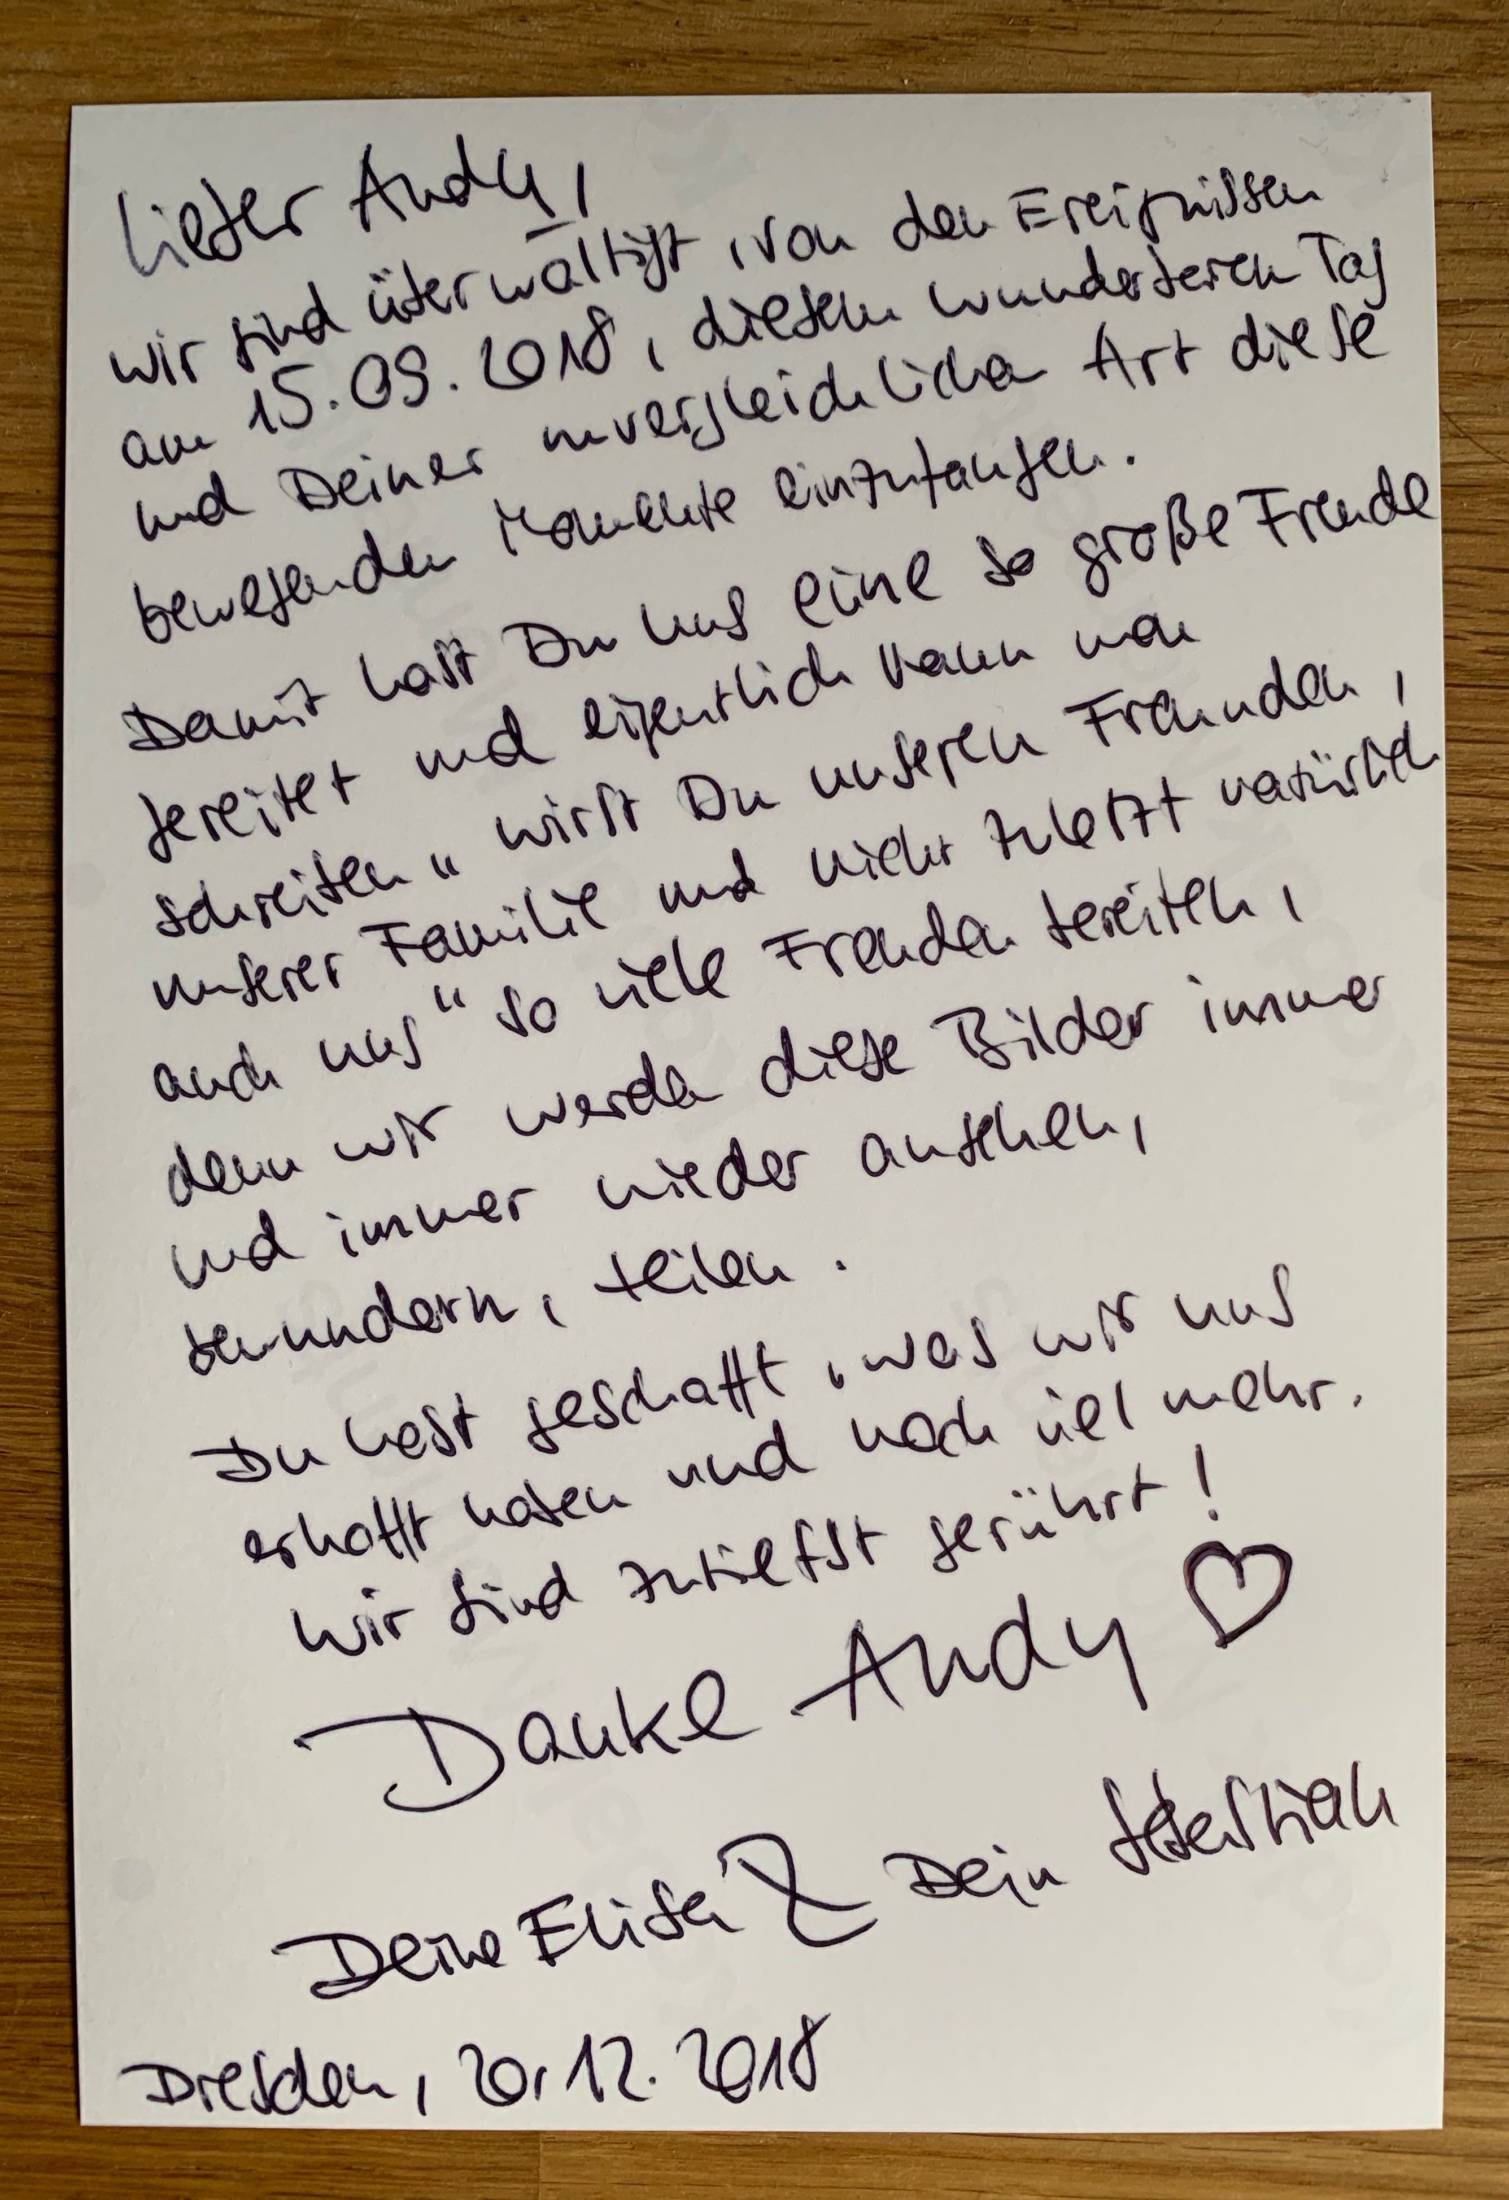 Lieber Andy,
wir sind überwältigt, von den Ereignissen
am 15.09.2018, diesem wunderbaren Tag
und Deiner unvergleichlichen Art diese
bewegenden Momente einzufangen.
Damit hast Du uns eine so große Freude
bereitet und eigentlich kann man
schreiben "wirst Du unseren Freunden,
unserer Familie und nicht zuletzt natürlich
auch uns" so viele Freuden bereiten,
denn wir werden diese Bilder immer
und immer wieder ansehen,
bewundern, teilen.
Du hast geschafft, was wir uns
erhofft haben und noch viel mehr.
Wir sind zutiefst gerührt!
Danke Andy ♡
Deine Elisa & Dein Sebastian
Dresden, 20.12.2018